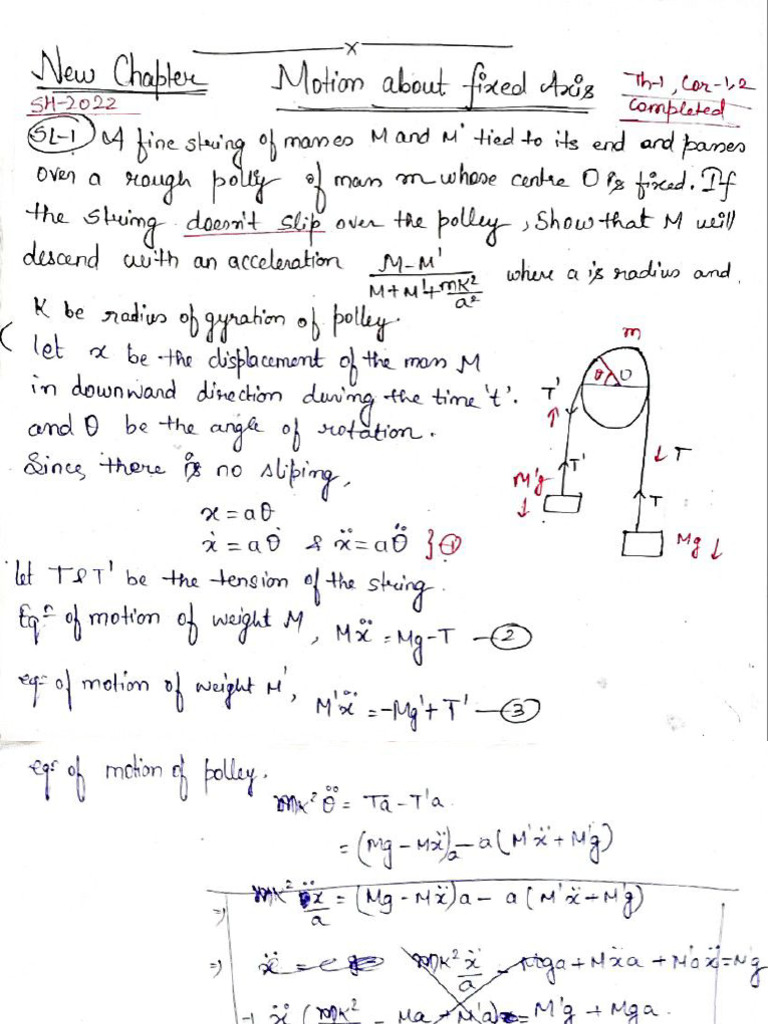 New Chapter Motion about fixed Axis Th-1, Cor-1,2
SH-2022 completed
SL-1 A fine string of masses M and M' tied to its end and passes
over a rough polly of mass m whose centre O is fixed. If
the string doesn't slip over the polley, Show that M will
descend with an acceleration (M-M')/(M+M'+mK²/a²) where a is radius and
K be radius of gyration of polley.
let x be the displacement of the mass M
in downward direction during the time 't'.
and θ be the angle of rotation.
Since, there is no sliping,
x = aθ
ẋ = aθ̇ & ẍ = aθ̈ } ①
let T & T' be the tension of the string.
Eqⁿ of motion of weight M, Mẍ = Mg - T — ②
eqⁿ of motion of weight M', M'ẍ = -Mg' + T' — ③
m
θ O
T'
T
T'
M'g
T
Mg
eqⁿ of motion of polley.
mK² θ̈ = Ta - T'a
= (Mg - Mẍ)a - a(M'ẍ + M'g)
⇒ mK² ẍ/a = (Mg - Mẍ)a - a(M'ẍ + M'g)
⇒ ẍ = mK² ẍ/a - Mga + Mẍa + M'aẍ = M'g
⇒ ẍ (mK² - Ma + M'a) = M'g + Mga.